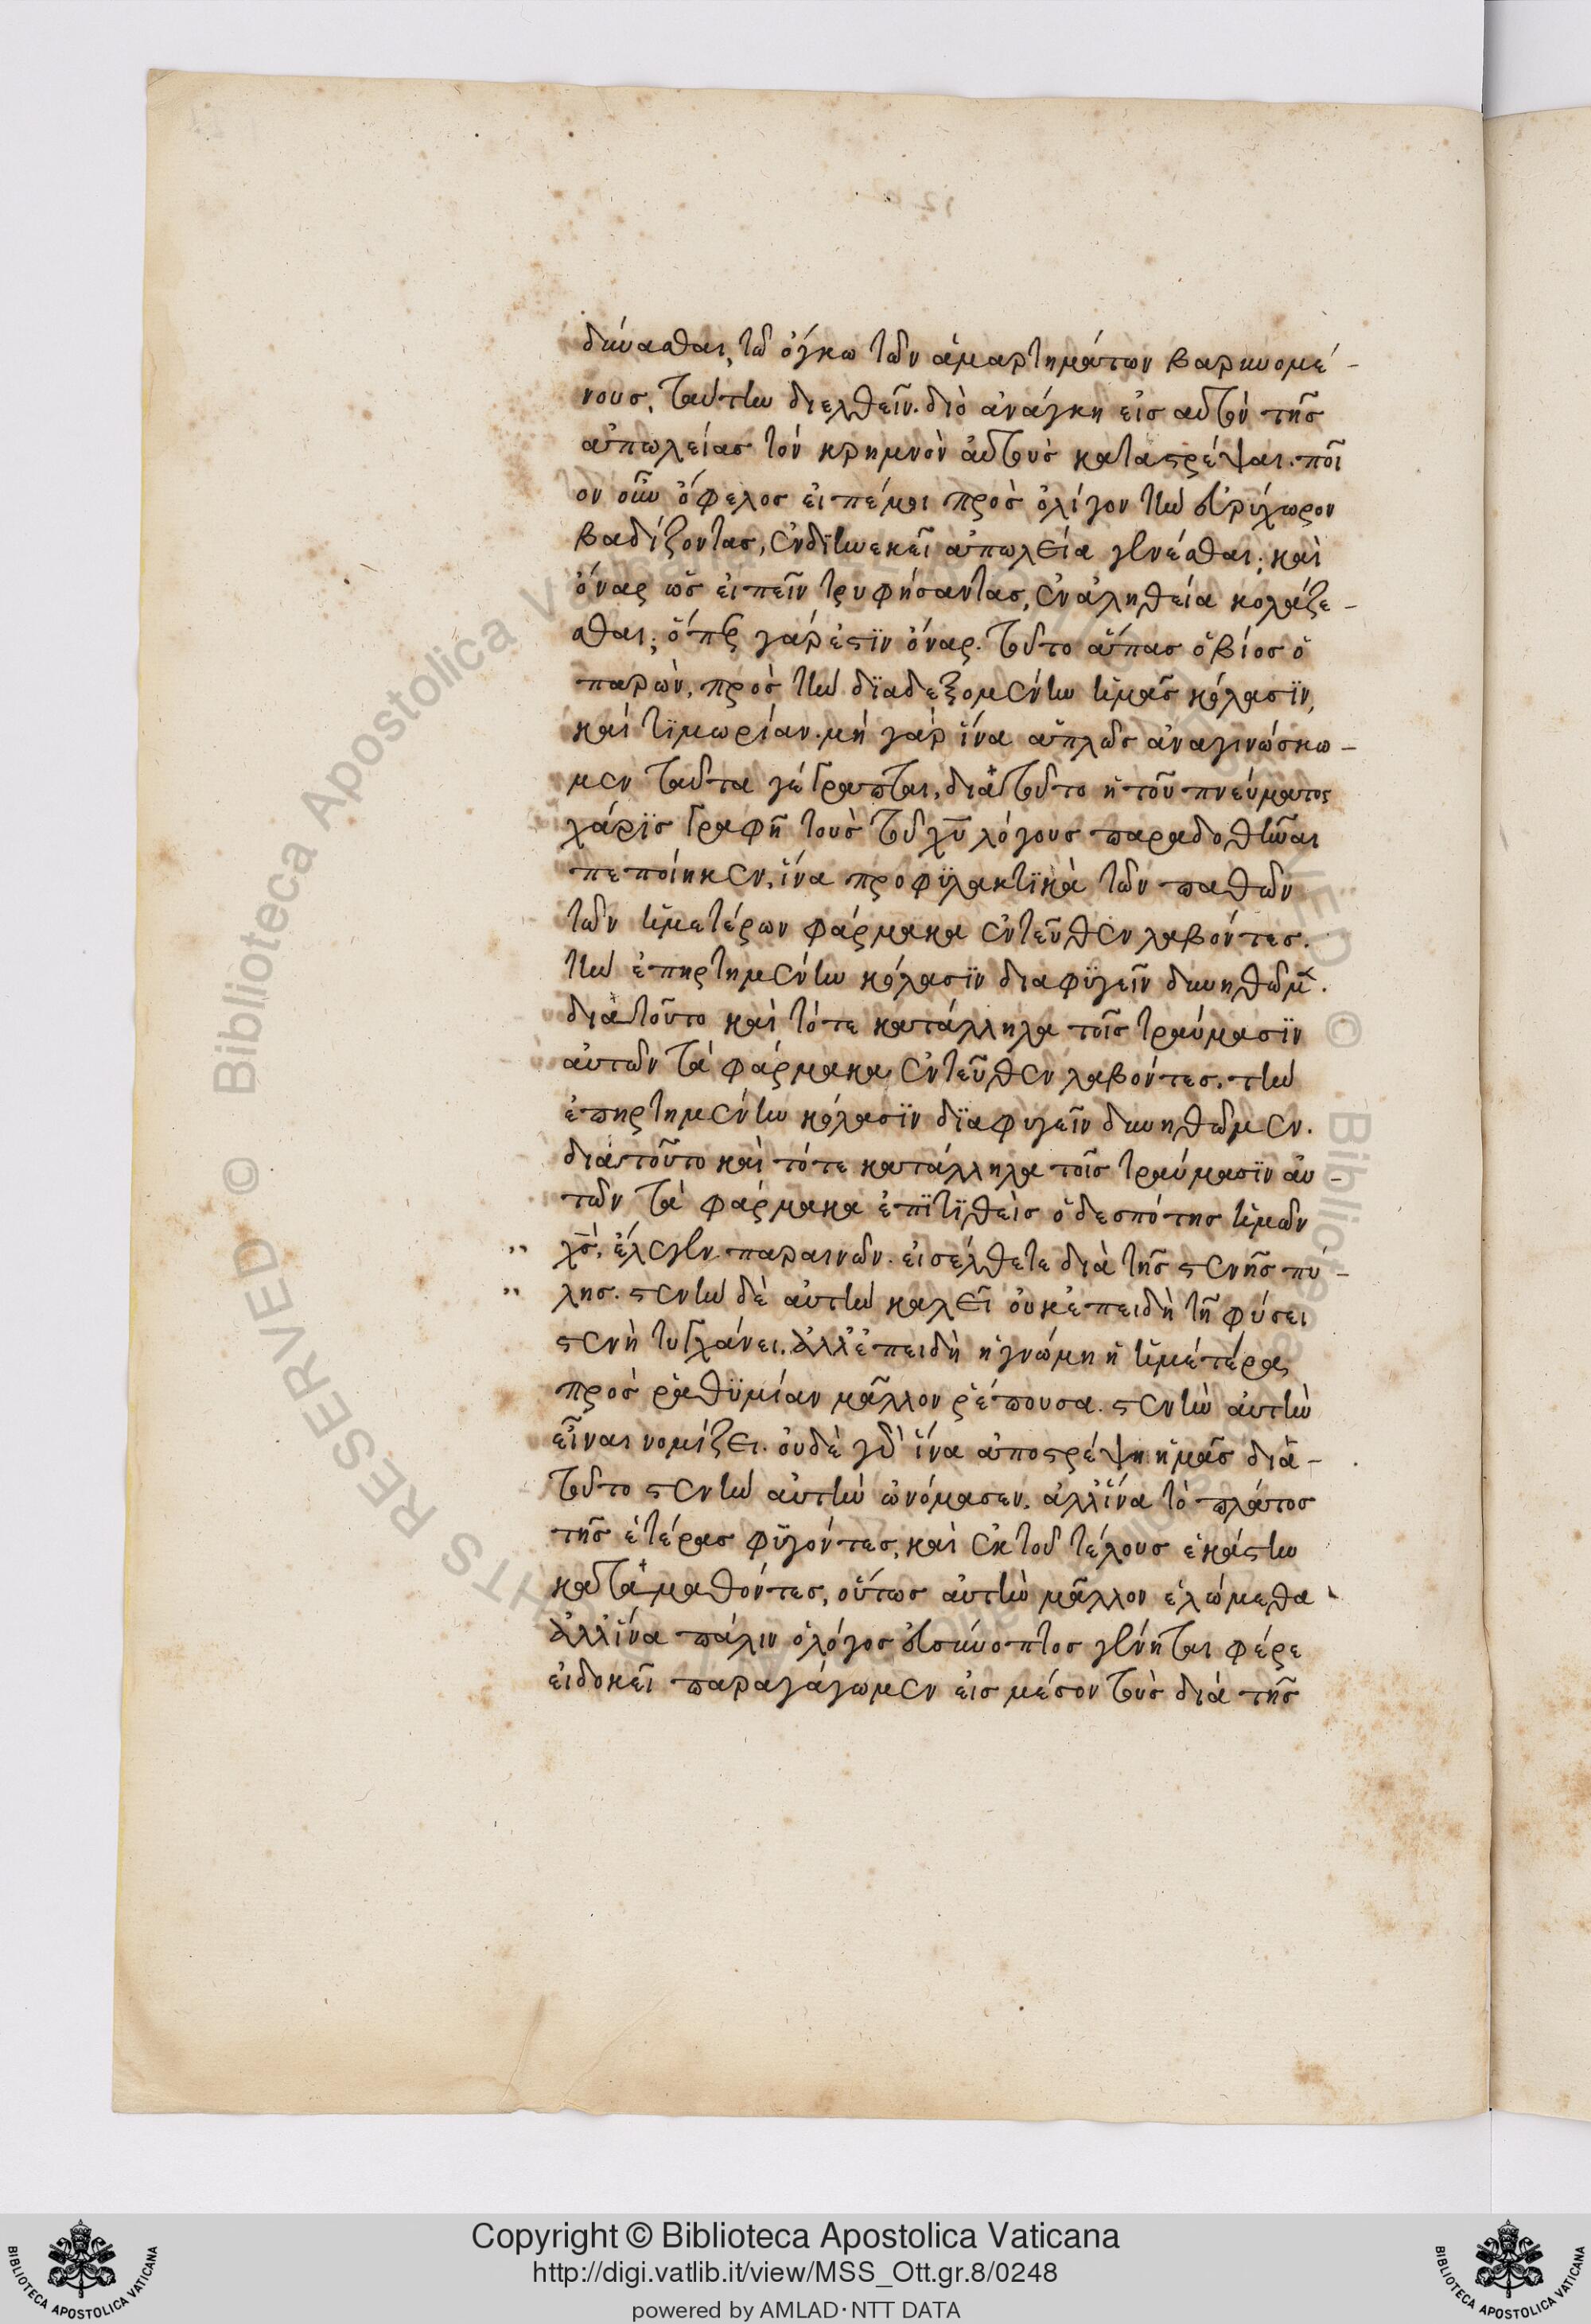 δύνασθαι, τῶ ὄγκω τῶν ἁμαρτημάτων βαρυνομέ-
νους, ταύτην διελθεῖν. διὸ ἀνάγκη εἰς αὐτὸν τῆς
ἀπωλείας τὸν κρημνὸν αὐτοὺς καταστρέψαι. ποῖ
ον οὖν ὄφελος εἰπέ μοι πρὸς ὀλίγον τὴν εὐρύχωρον
βαδίζοντας, ἐν διηνεκεῖ ἀπωλεία γενέσθαι; καὶ
ὄναρ ὡς εἰπεῖν τρυφήσαντας, ἐν ἀληθεία κολάζε-
σθαι; ὅπερ γάρ ἐστιν ὄναρ. τοῦτο ἅπας ὁ βίος ὁ
παρὼν, πρὸς τὴν διαδεξομένην ἡμᾶς κόλασϊν,
καὶ τϊμωρίαν. μὴ γὰρ ἵνα ἁπλῶς ἀναγινώσκω-
μεν ταῦτα γέγραπται, διὰ τοῦτο ἡ τοῦ πνεύματος
χάρϊς γραφῆ τοὺς τοῦ χυ λόγους παραδοθῆναι
πεποίηκεν, ἵνα προφϋλακτϊκὰ τῶν παθῶν
τῶν ἡμετέρων φάρμακα ἐντεῦθεν λαβόντες.
τὴν ἐπηρτημένην κόλασϊν διαφϋγεῖν δυνηθῶμεν.
διὰ τοῦτο καὶ τότε κατάλληλα τοῖς τραύμασϊν
αὐτῶν τὰ φάρμακα ἐντεῦθεν λαβόντες. τὴν
ἐπηρτημένην κόλασϊν δϊαφυγεῖν δυνηθῶμεν.
διὰ τοῦτο καὶ τότε κατάλληλα τοῖς τραύμασϊν αὐ-
τῶν τὰ φάρμακα ἐπϊτϊθεὶς ὁ δεσπότης ἡμῶν
χς, ἔλεγεν παραινῶν. εἰσέλθετε διὰ τῆς στενῆς πύ-
λης. στενὴν δὲ αὐτὴν καλεῖ οὐκ ἐπειδὴ τῆ φύσει
στενὴ τυγχάνει. ἀλλ' ἐπειδὴ ἡ γνώμη ἡ ἡμετέρα
πρὸς ῥαθϋμίαν μᾶλλον ῥέπουσα. στενὴν αὐτὴν
εἶναι νομίζει. οὐδὲ γὰρ ἵνα ἀποστρέψη ἡμᾶς διὰ-
τοῦτο στενὴν αὐτὴν ὠνόμασεν. ἀλλ' ἵνα τὸ πλάτος
τῆς ἑτέρας φϋγόντες, καὶ ἐκ τοῦ τέλους ἑκάστην
καταμαθόντες, οὕτως αὐτὴν μᾶλλον ἑλώμεθα
ἀλλ' ἵνα πάλιν ὁ λόγος εὐσύνοπτος γένηται φέρε
εἰ δοκεῖ παραγάγωμεν εἰς μέσον τοὺς διὰ τῆς
Copyright © Biblioteca Apostolica Vaticana
http://digi.vatlib.it/view/MSS_Ott.gr.8/0248
powered by AMLAD·NTT DATA